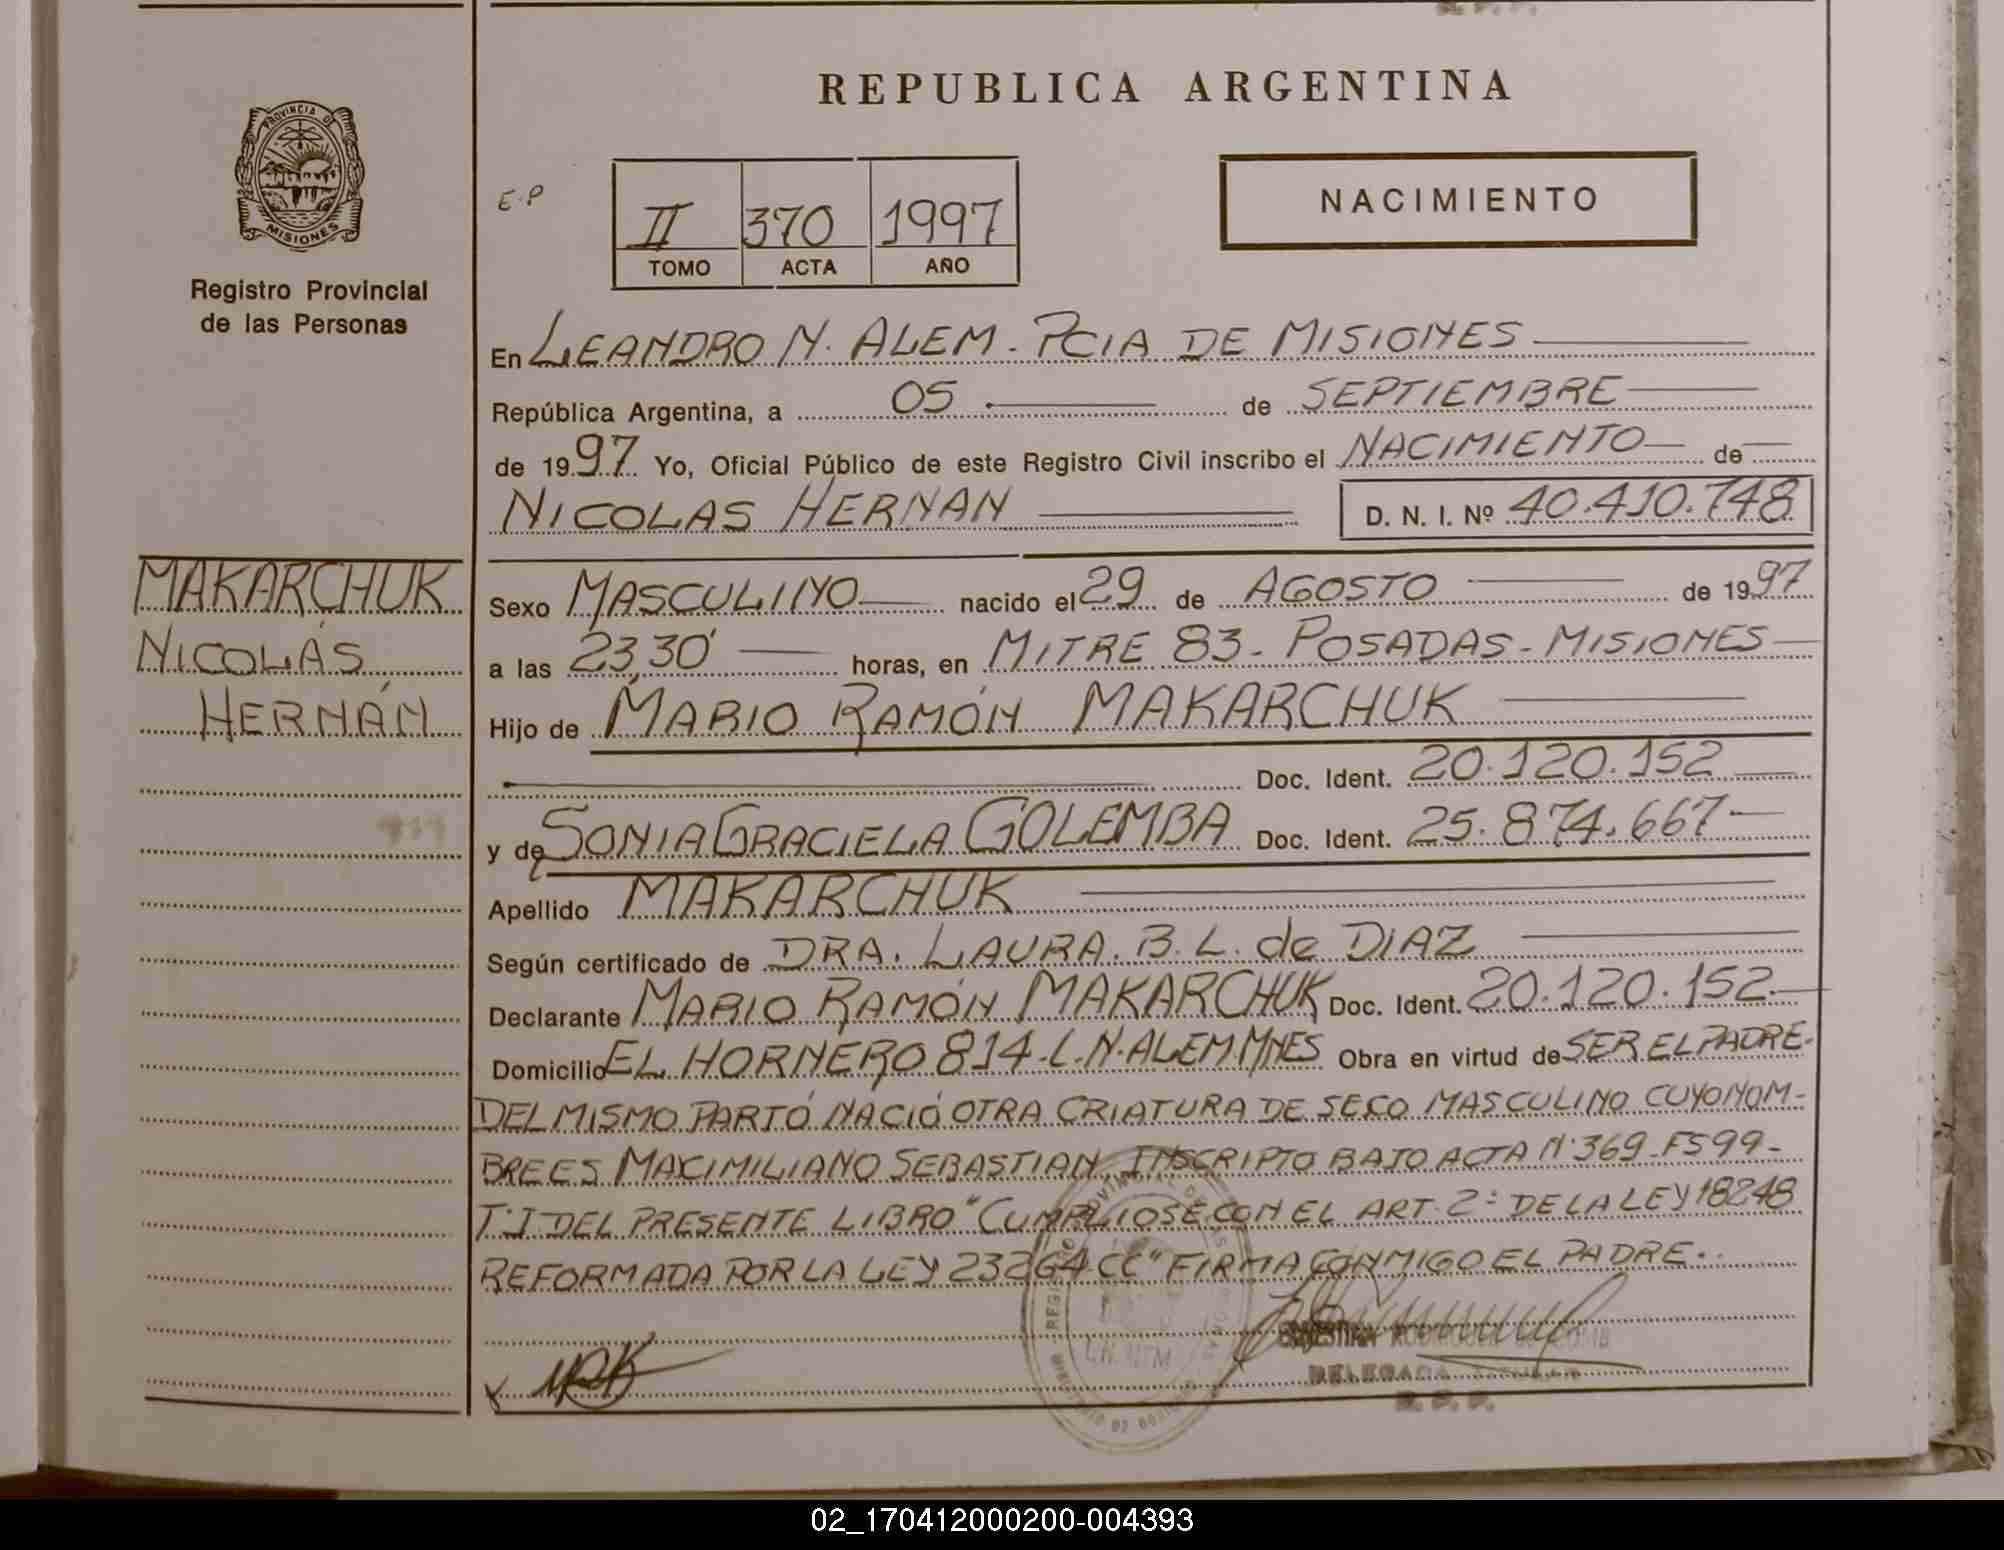 REPUBLICA ARGENTINA
PROVINCIA DE
MISIONES
Registro Provincial
de las Personas
E.P
II 370 1997
TOMO ACTA AÑO
NACIMIENTO
En LEANDRO N. ALEM - PCIA DE MISIONES
República Argentina, a 05 de SEPTIEMBRE
de 1997 Yo, Oficial Público de este Registro Civil inscribo el NACIMIENTO de
NICOLAS HERNAN D. N. I. Nº 40.410.748
MAKARCHUK
NICOLÁS
HERNÁN
Sexo MASCULINO nacido el 29 de AGOSTO de 1997
a las 23,30' horas, en MITRE 83 - POSADAS - MISIONES
Hijo de MARIO RAMÓN MAKARCHUK
Doc. Ident. 20.120.152
y de SONIA GRACIELA GOLEMBA Doc. Ident. 25.874.667
Apellido MAKARCHUK
Según certificado de DRA. LAURA. B. L. de DIAZ
Declarante MARIO RAMÓN MAKARCHUK Doc. Ident. 20.120.152
Domicilio EL HORNERO 814 - L. N. ALEM MNES Obra en virtud de SER EL PADRE.
DEL MISMO PARTO NACIÓ OTRA CRIATURA DE SECO MASCULINO CUYO NOM-
BRE ES MAXIMILIANO SEBASTIAN, INSCRIPTO BAJO ACTA Nº 369 - FS 99 -
Tº I DEL PRESENTE LIBRO "CUMPLIOSE CON EL ART. 2º DE LA LEY 18248
REFORMADA POR LA LEY 23264 CC" FIRMA CONMIGO EL PADRE.
DELEGADA TITULAR
R. P. P.
02_170412000200-004393